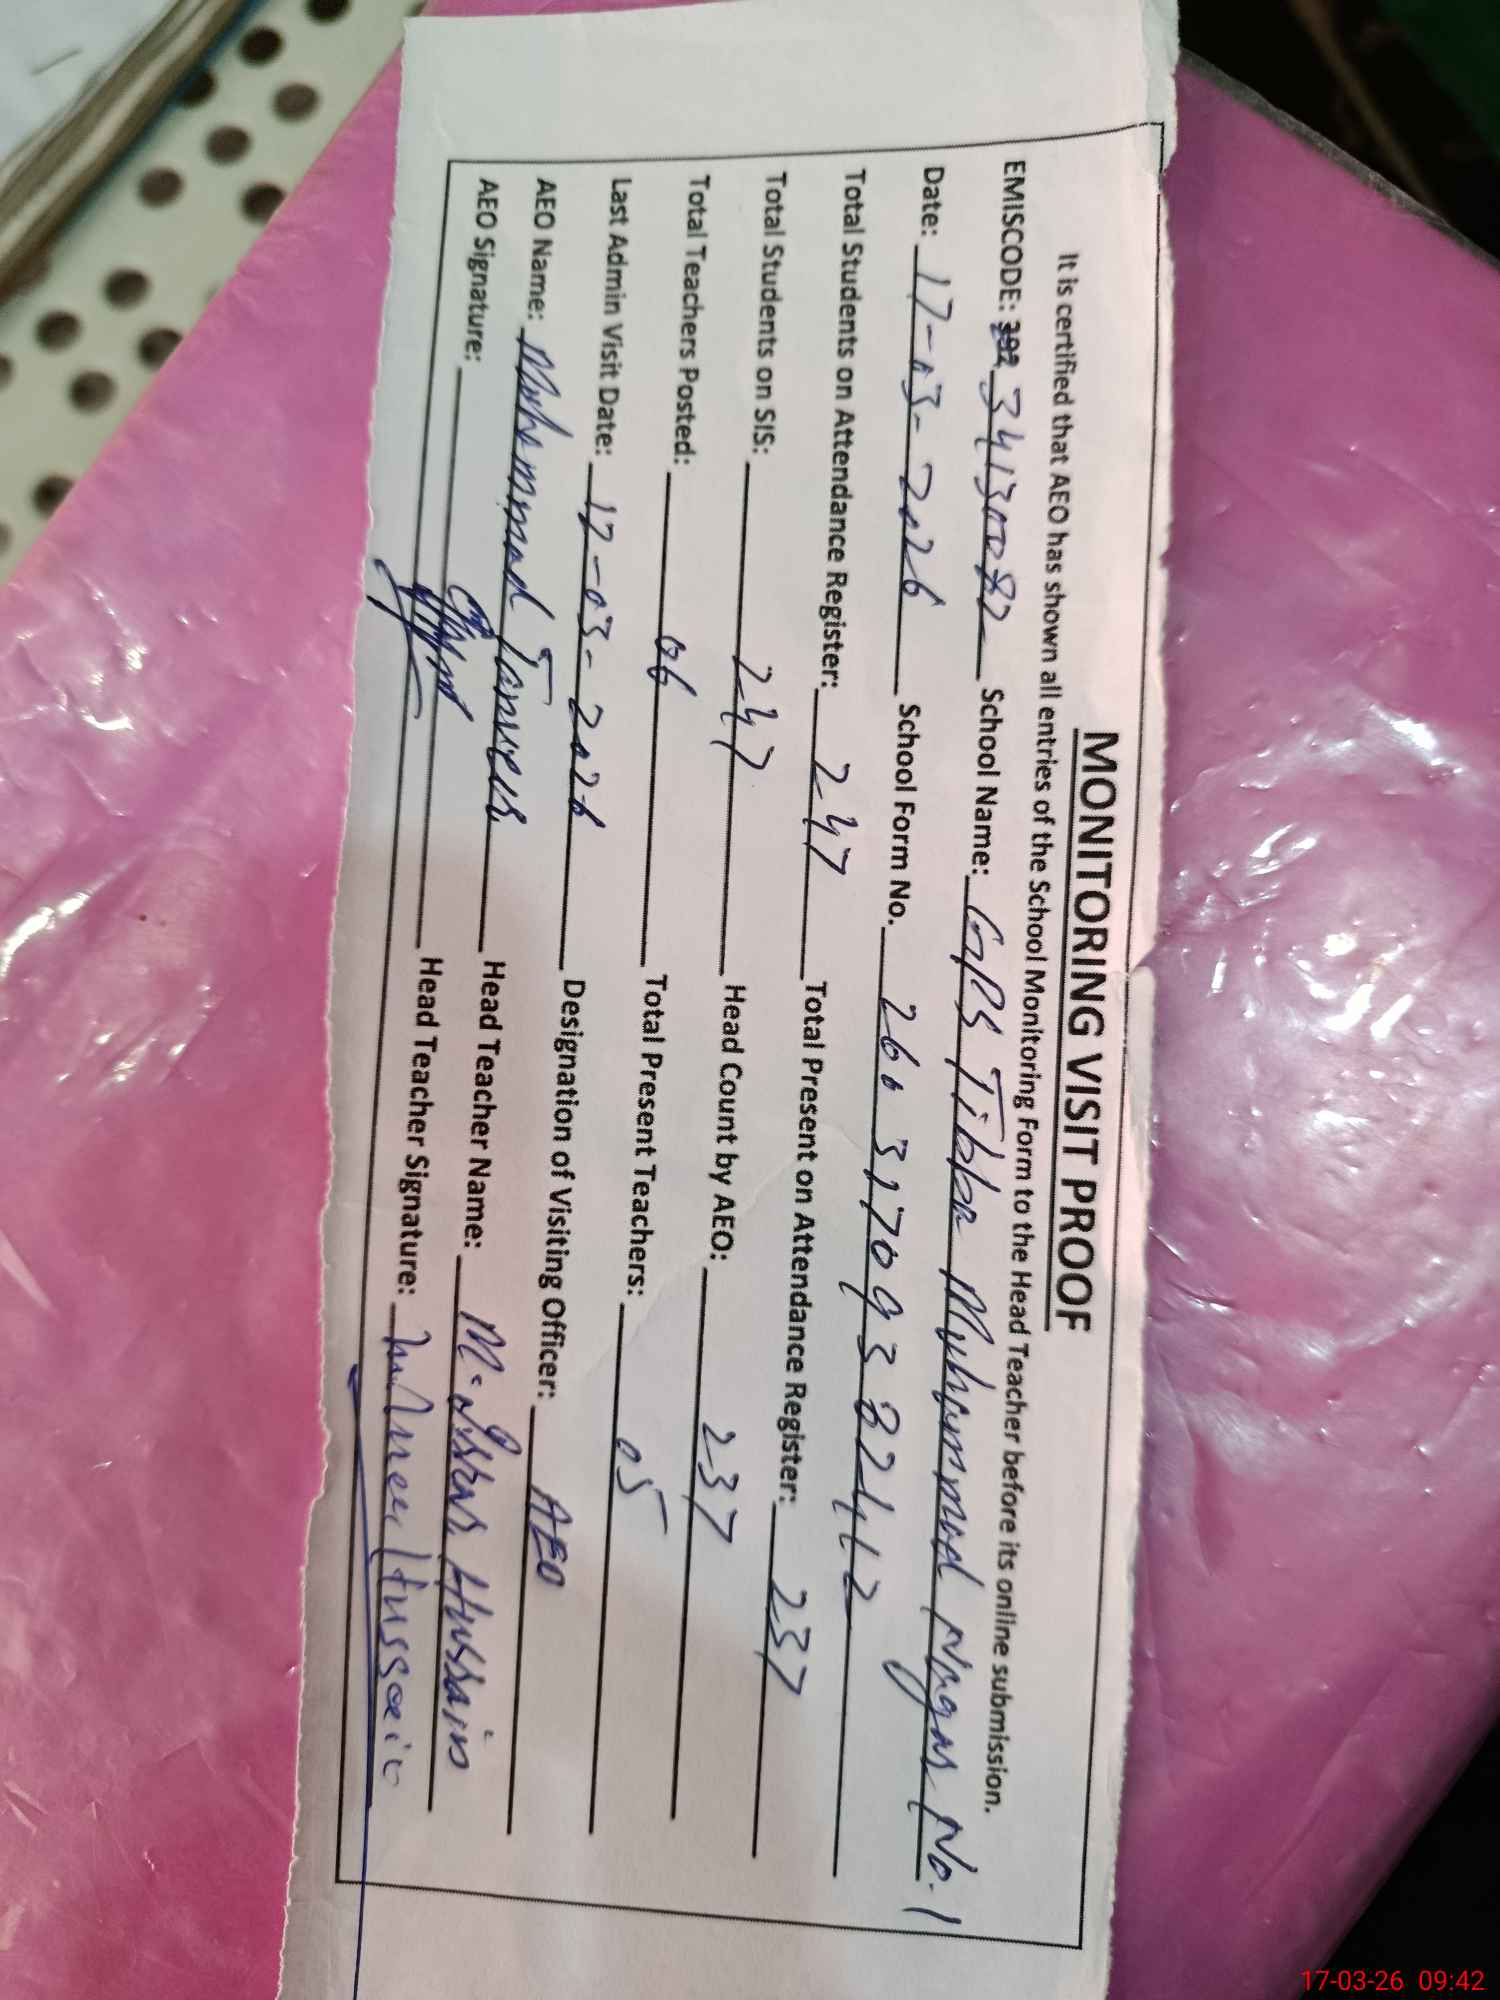 MONITORING VISIT PROOF
It is certified that AEO has shown all entries of the School Monitoring Form to the Head Teacher before its online submission.
EMISCODE: 34130082 School Name: GPS Tibba Muhammad Nagar No.1
Date: 17-03-2026 School Form No. 26031709332412
Total Students on Attendance Register: 247 Total Present on Attendance Register: 237
Total Students on SIS: 247 Head Count by AEO: 237
Total Teachers Posted: 06 Total Present Teachers: 05
Last Admin Visit Date: 17-03-2026 Designation of Visiting Officer: AEO
AEO Name: Muhammad Tanveer Head Teacher Name: M. Hussain
AEO Signature: Head Teacher Signature: Hussain
17-03-26 09:42